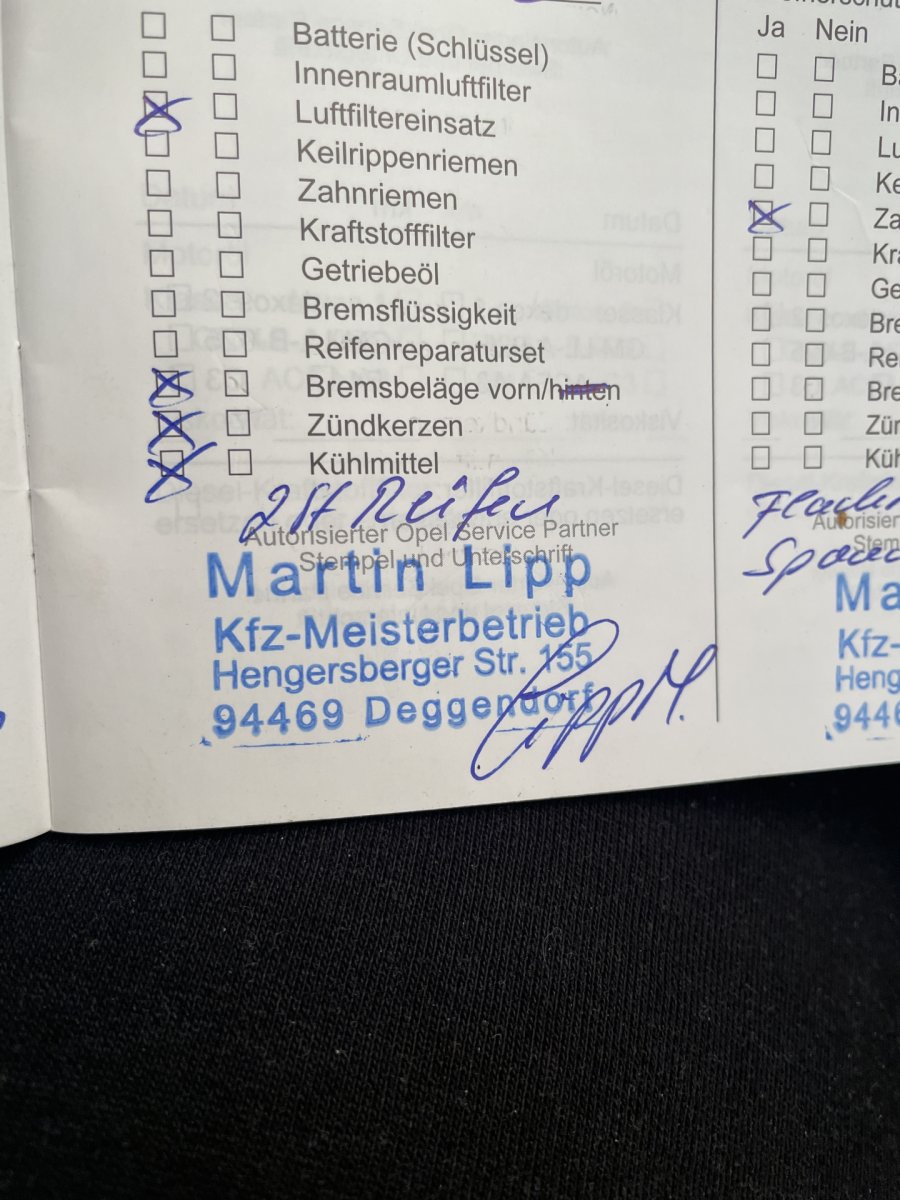 Batterie (Schlüssel)
Innenraumluftfilter
Luftfiltereinsatz
Keilrippenriemen
Zahnriemen
Kraftstofffilter
Getriebeöl
Bremsflüssigkeit
Reifenreparaturset
Bremsbeläge vorn/hinten
Zündkerzen
Kühlmittel
2 St Reifen
Autorisierter Opel Service Partner
Stempel und Unterschrift
Martin Lipp
Kfz-Meisterbetrieb
Hengersberger Str. 155
94469 Deggendorf
Lipp M.
Ja Nein
Ba
In
Lu
Ke
Za
Kra
Ge
Bre
Re
Bre
Zün
Küh
Autorisier
Stem
Ma
Kfz-
Heng
9446